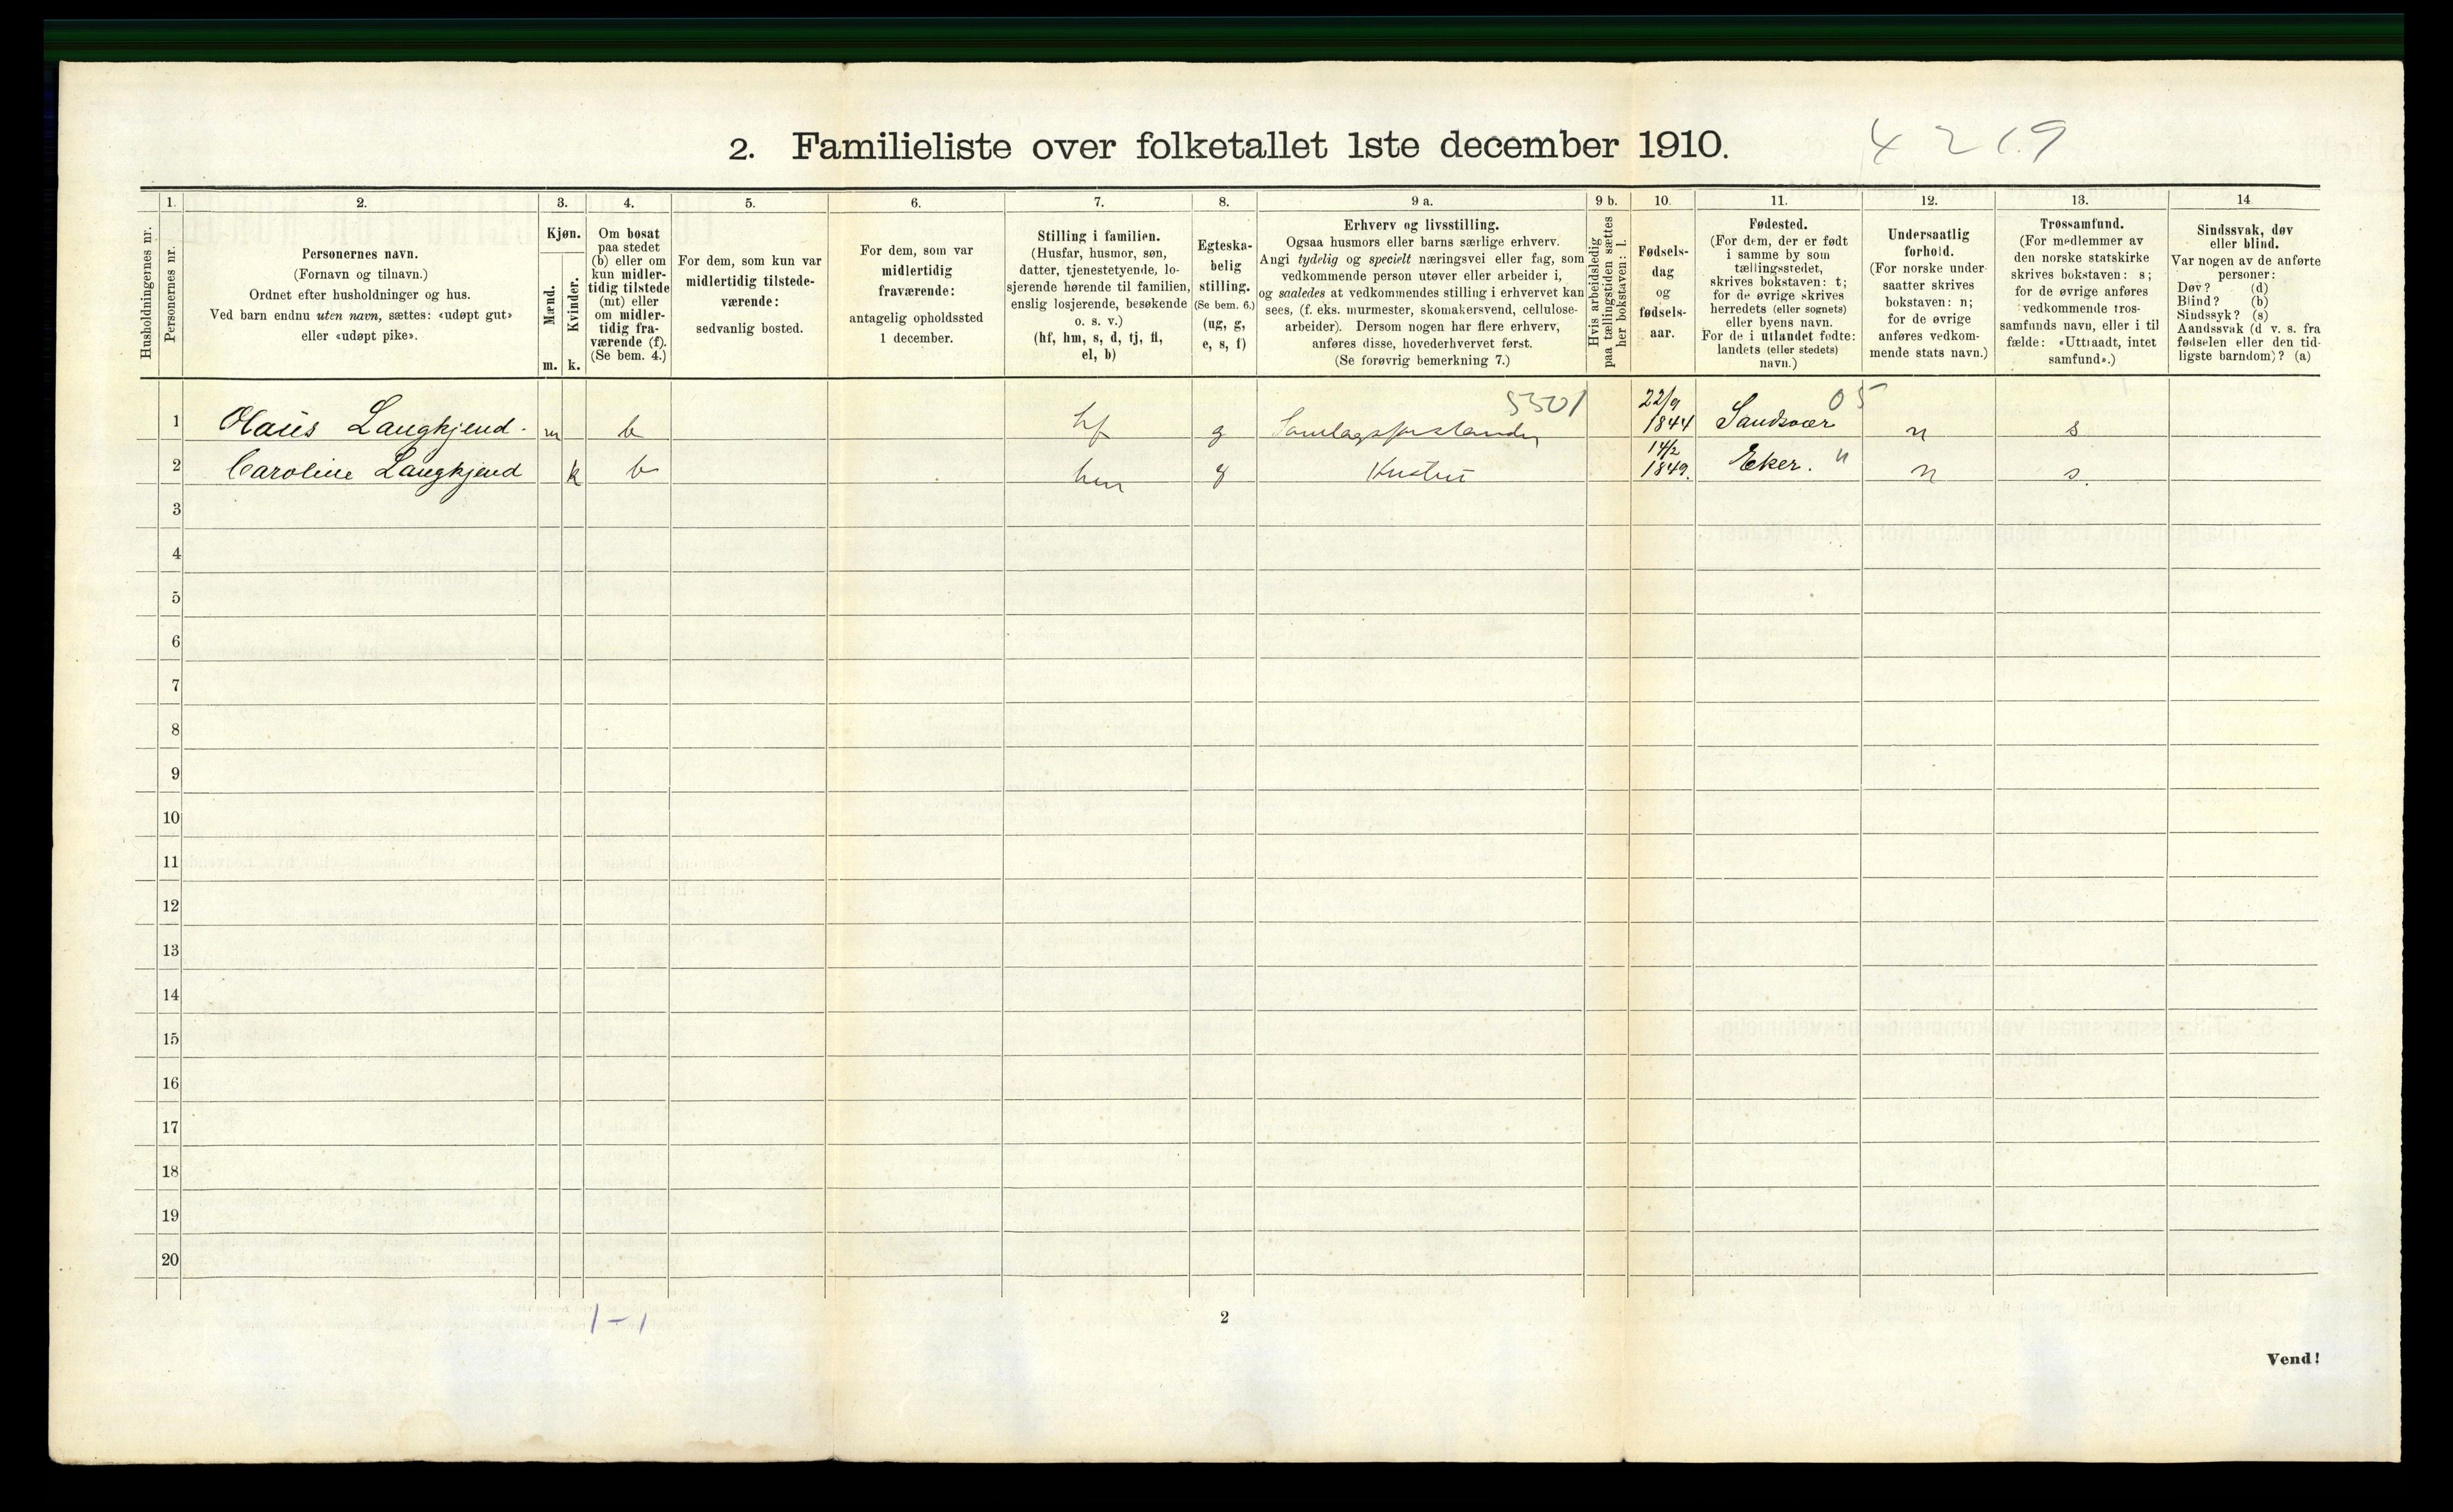 2. Familieliste over folketallet 1ste december 1910.
4219
Husholdningernes nr.
1.
Personernes nr.
2.
Personernes navn.
(Fornavn og tilnavn.)
Ordnet efter husholdninger og hus.
Ved barn endnu uten navn, sættes: «udøpt gut»
eller «udøpt pike».
3.
Kjøn.
Mænd.
Kvinder.
m. k.
4.
Om bosat
paa stedet
(b) eller om
kun midler-
tidig tilstede
(mt) eller
om midler-
tidig fra-
værende (f).
(Se bem. 4.)
5.
For dem, som kun var
midlertidig tilstede-
værende:
sedvanlig bosted.
6.
For dem, som var
midlertidig
fraværende:
antagelig opholdssted
1 december.
7.
Stilling i familien.
(Husfar, husmor, søn,
datter, tjenestetyende, lo-
sjerende hørende til familien,
enslig losjerende, besøkende
o. s. v.)
(hf, hm, s, d, tj, fl,
el, b)
8.
Egteska-
belig
stilling.
(Se bem. 6.)
(ug, g,
e, s, f)
9 a.
Erhverv og livsstilling.
Ogsaa husmors eller barns særlige erhverv.
Angi tydelig og specielt næringsvei eller fag, som
vedkommende person utøver eller arbeider i,
og saaledes at vedkommendes stilling i erhvervet kan
sees, (f. eks. murmester, skomakersvend, cellulose-
arbeider). Dersom nogen har flere erhverv,
anføres disse, hovederhvervet først.
(Se forøvrig bemerkning 7.)
9 b.
Hvis arbeidsledig
paa tællingstiden sættes
her bokstaven: l.
10.
Fødsels-
dag
og
fødsels-
aar.
11.
Fødested.
(For dem, der er født
i samme by som
tællingsstedet,
skrives bokstaven: t;
for de øvrige skrives
herredets (eller sognets)
eller byens navn.
For de i utlandet fødte:
landets (eller stedets)
navn.)
12.
Undersaatlig
forhold.
(For norske under-
saatter skrives
bokstaven: n;
for de øvrige
anføres vedkom-
mende stats navn.)
13.
Trossamfund.
(For medlemmer av
den norske statskirke
skrives bokstaven: s;
for de øvrige anføres
vedkommende tros-
samfunds navn, eller i til-
fælde: «Uttraadt, intet
samfund».)
14
Sindssvak, døv
eller blind.
Var nogen av de anførte
personer:
Døv? (d)
Blind? (b)
Sindssyk? (s)
Aandssvak (d v. s. fra
fødselen eller den tid-
ligste barndom)? (a)
5501 22/9 05
1 Olaus Langkjend. m b hf g Samlagsforstander 1844 Sandsvær n s
14/2
2 Caroline Langkjend k b hm g Hustru 1849. Eker. " n s.
3
4
5
6
7
8
9
10
11
12
13
14
15
16
17
18
19
20
1-1
2
Vend!